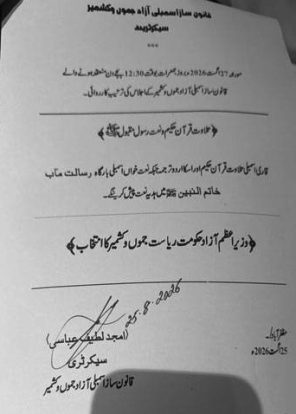 قانون ساز اسمبلی آزاد جموں وکشمیر
سیکرٹریٹ
***
مورخہ 27 اگست 2026ء بروز جمعرات بوقت 12:30 بجے دن منعقد ہونے والے
قانون ساز اسمبلی آزاد جموں وکشمیر کے اجلاس کی ترتیب کارروائی۔
﴿تلاوت قرآن حکیم و نعت رسول مقبول ﷺ﴾
قاری اسمبلی تلاوت قرآن حکیم اور اسکا اردو ترجمہ جبکہ نعت خواں اسمبلی بارگاہ رسالت مآب
خاتم النبین ﷺ میں ہدیہ نعت پیش کرینگے۔
﴿وزیراعظم آزاد حکومت ریاست جموں و کشمیر کا انتخاب﴾
25-8-2026
(امجد لطیف عباسی)
سیکرٹری
قانون ساز اسمبلی آزاد جموں وکشمیر
مظفرآباد۔
25 اگست 2026ء